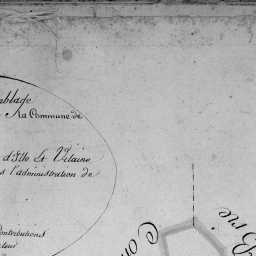 la Commune de
d'Ille Et Vilaine
l'administration de
Contributions
Com
Brie